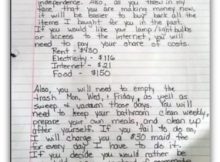 independence. Also, as you threw in my
face that you are making money now,
it will be easier to buy back all the
items I bought for you in the past.
If you would like your lamp/lightbulbs
or access to the internet, you will
need to pay your share of costs.
Rent - $430
Electricity - $116
Internet - $21
Food - $150
Also, you will need to empty the
trash Mon, Wed, + Friday, as well as
sweep + vacuum those days. You will
need to keep your bathroom clean weekly,
prepare your own meals, and clean up
after yourself. If you fail to do so,
I will charge you a $30 maid fee
for every day I have to do it.
If you decide you would rather be